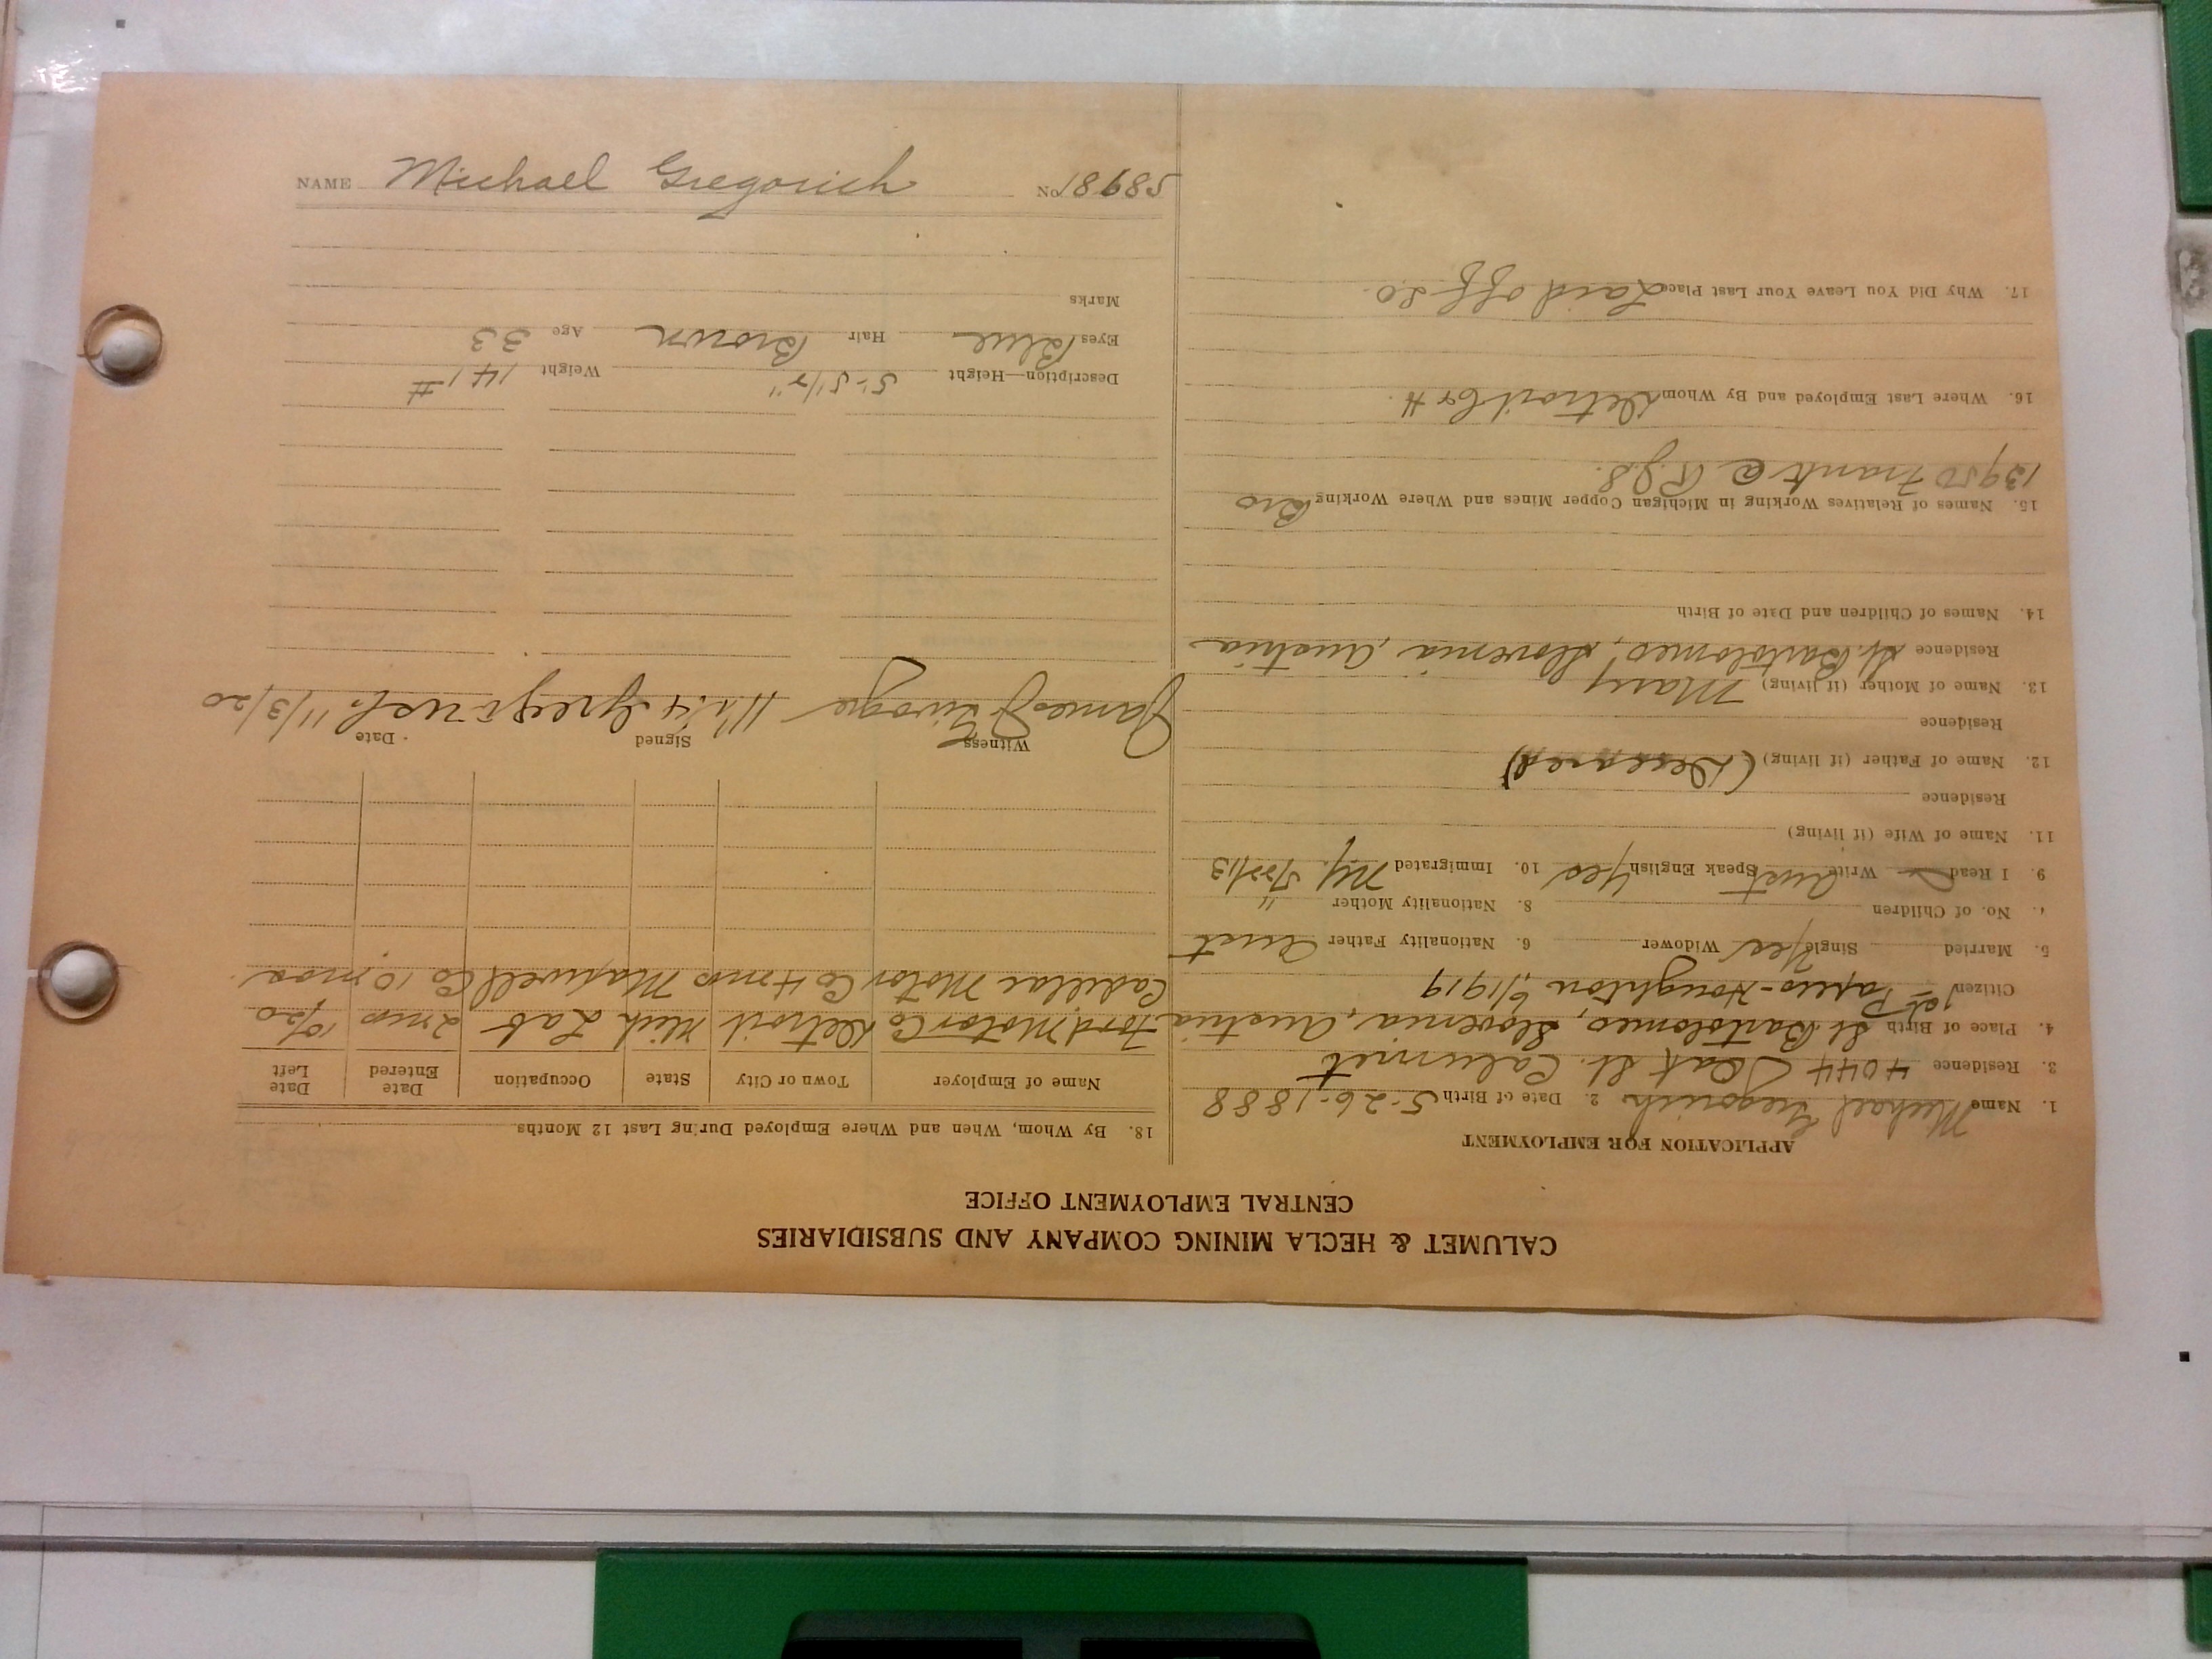 CALUMET & HECLA MINING COMPANY AND SUBSIDIARIES
CENTRAL EMPLOYMENT OFFICE
APPLICATION FOR EMPLOYMENT
1. Name Michael Gregorich 2. Date of Birth 5-26-1888
3. Residence 4044 Oak St. Calumet
4. Place of Birth St. Bartolomeo, Slovenia, Austria
Citizen 1st Papers-Houghton 6/1919
5. Married Single Yes Widower 6. Nationality Father Aust
7. No. of Children 8. Nationality Mother "
9. I Read Write Aust Speak English Yes 10. Immigrated N.Y.
11. Name of Wife (if living)
Residence
12. Name of Father (if living) (Deceased)
Residence
13. Name of Mother (if living) Mary
Residence St. Bartolomeo, Slovenia, Austria
14. Names of Children and Date of Birth
15. Names of Relatives Working in Michigan Copper Mines and Where Working Bro
13950 Frank @
16. Where Last Employed and By Whom Detroit
17. Why Did You Leave Your Last Place Laid off
18. By Whom, When and Where Employed During Last 12 Months
Name of Employer Town or City State Occupation Date Entered Date Left
Ford Motor Co Detroit Mich Lab 2 mos 10/20
Cadillac Motor Co 4 mos Maxwell Co 10 mos
Witness Signed Date
James Gregorich 11/3/20
Description—Height 5'-5 1/2" Weight 141 #
Eyes Blue Hair Brown Age 33
Marks
NAME Michael Gregorich No 58981